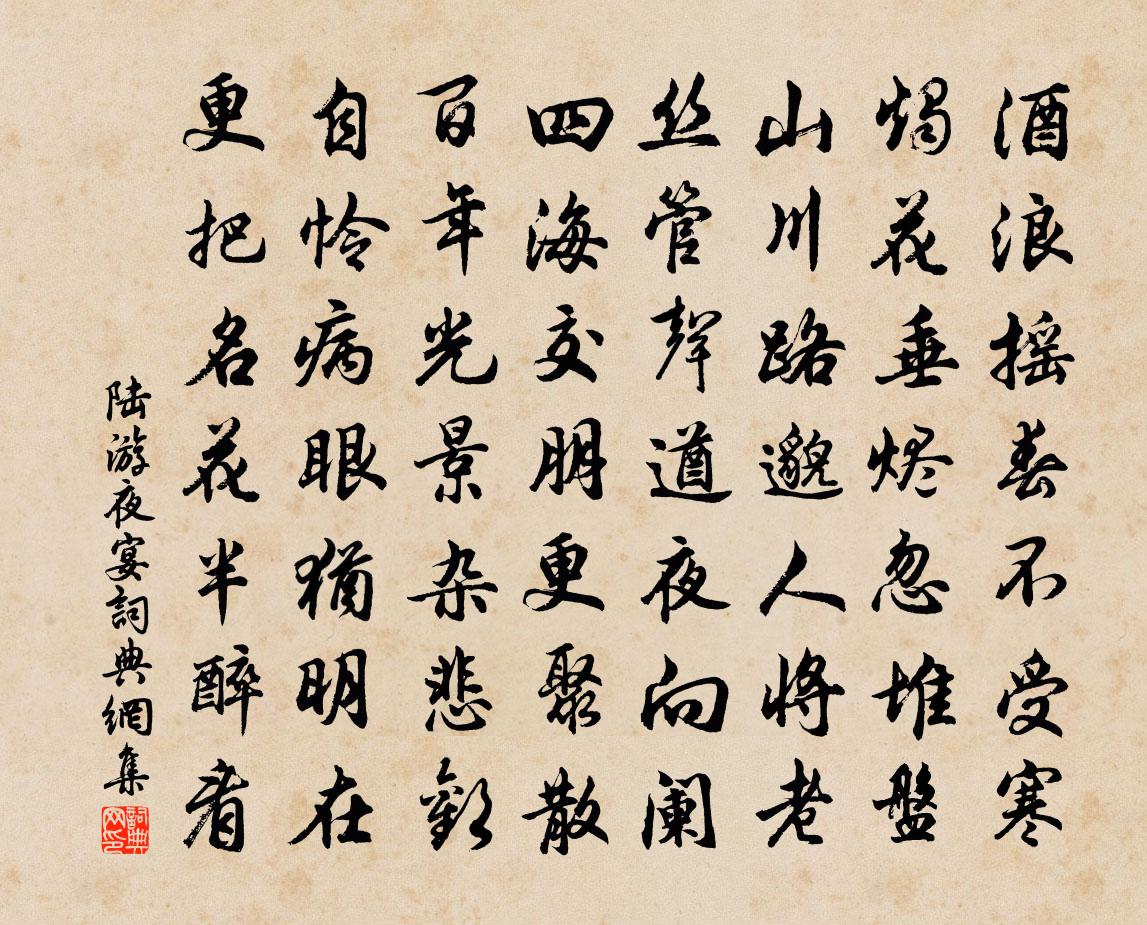 酒浪摇春不受寒
燭花垂烬忽堆盤
山川路邈人将老
丝管聲遒夜向阑
四海交朋更聚散
百年光景杂悲歡
自怜病眼猶明在
更把名花半醉看
陆游夜宴詞典網集
詞典网印